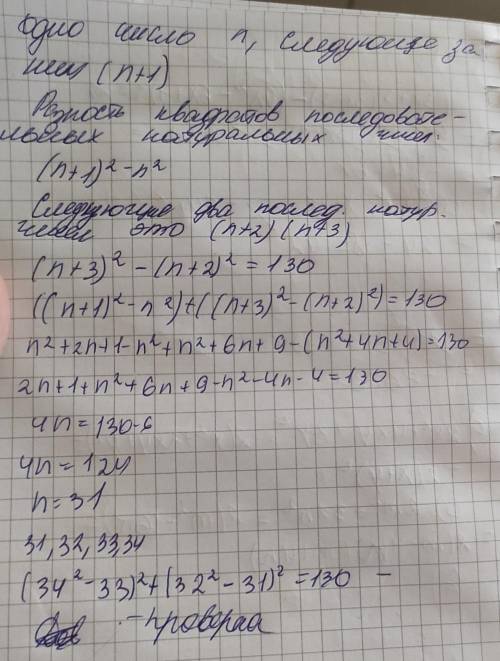 одно число n, следующее за
ним (n+1)
Разность квадратов последовате-
льных натуральных чисел
(n+1)² - n²
Следующие два послед. натур.
числа это (n+2) (n+3)
(n+3)² - (n+2)² = 130
((n+1)² - n²) + ((n+3)² - (n+2)²) = 130
n² + 2n + 1 - n² + n² + 6n + 9 - (n² + 4n + 4) = 130
2n + 1 + n² + 6n + 9 - n² - 4n - 4 = 130
4n = 130 - 6
4n = 124
n = 31
31, 32, 33, 34
(34² - 33)² + (32² - 31)² = 130 -
- проверка